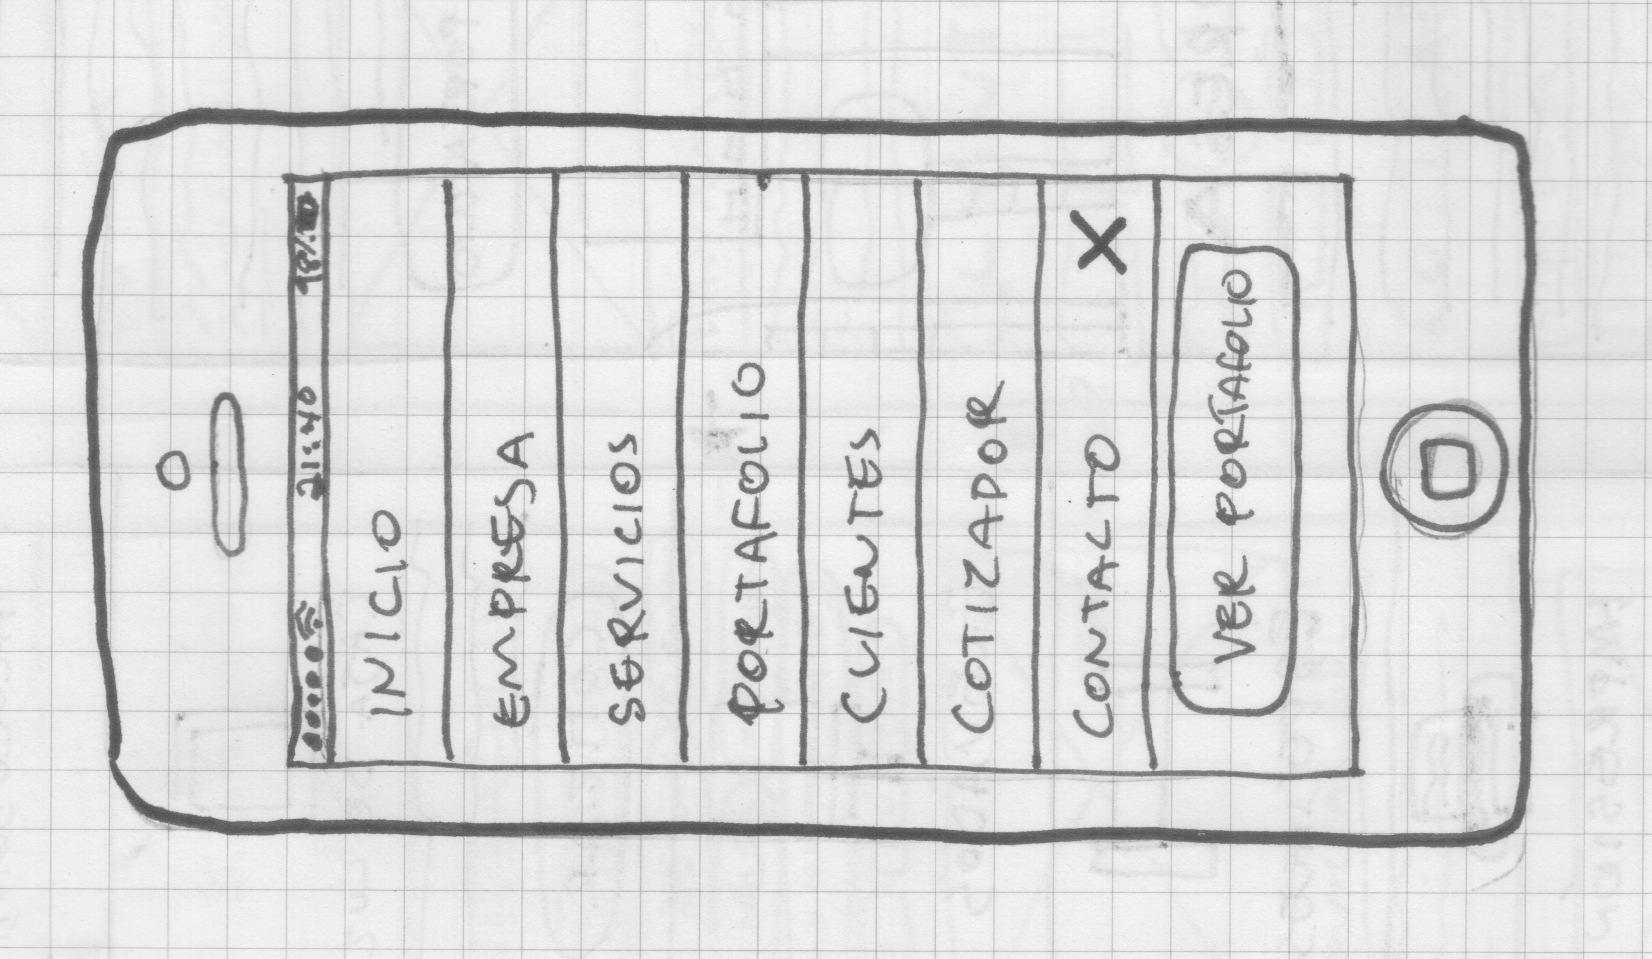 21:40 98%
INICIO
EMPRESA
SERVICIOS
PORTAFOLIO
CLIENTES
COTIZADOR
CONTACTO X
VER PORTAFOLIO